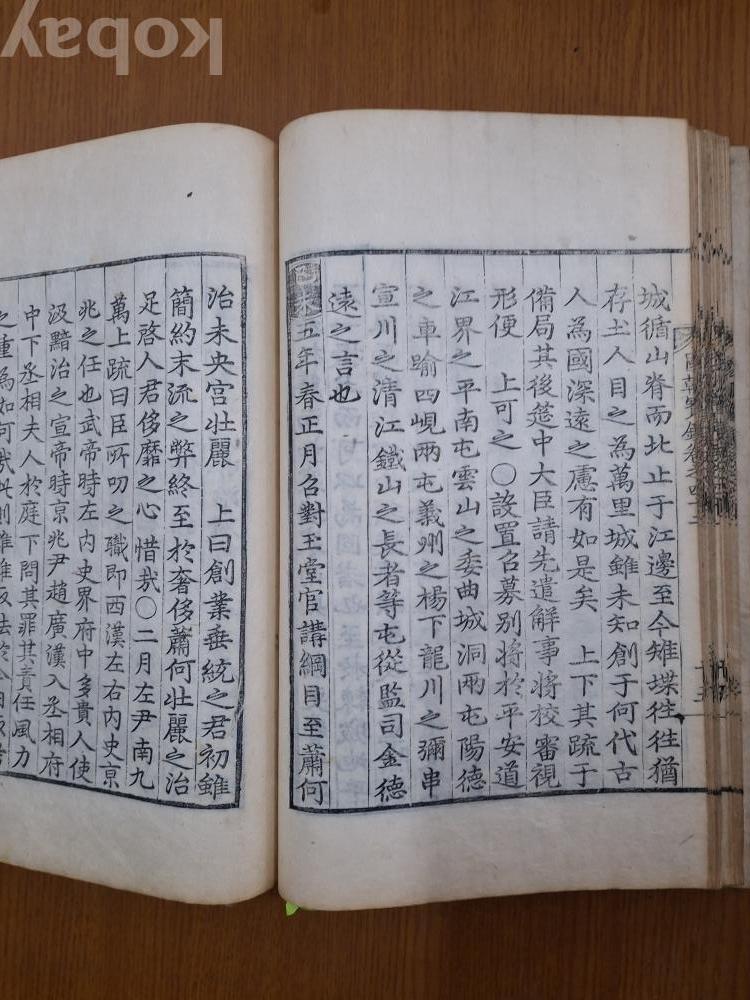 kobay
城循山脊而北止于江邊至今雉堞徃徃猶
存土人目之為萬里城雖未知創于何代古
人為國深遠之慮有如是矣 上下其疏于
備局其後筵中大臣請先遣解事將校審視
形便 上可之○設置召募别將於平安道
江界之平南屯雲山之委曲城洞兩屯陽德
之車踰四峴兩屯義州之楊下龍川之彌串
宣川之清江鐵山之長者等屯從監司金德
遠之言也
五年春正月召對玉堂官講綱目至蕭何
治未央宫壯麗 上曰創業垂統之君初雖
簡約末流之弊終至於奢侈蕭何壯麗之治
足啓人君侈靡之心惜㦲○二月左尹南九
萬上疏曰臣所叨之職即西漢左右内史京
兆之任也武帝時左内史界府中多貴人使
汲黯治之宣帝時京兆尹趙廣漢入丞相府
中下丞相夫人於庭下問其罪其責任風力
之重為如何㦲